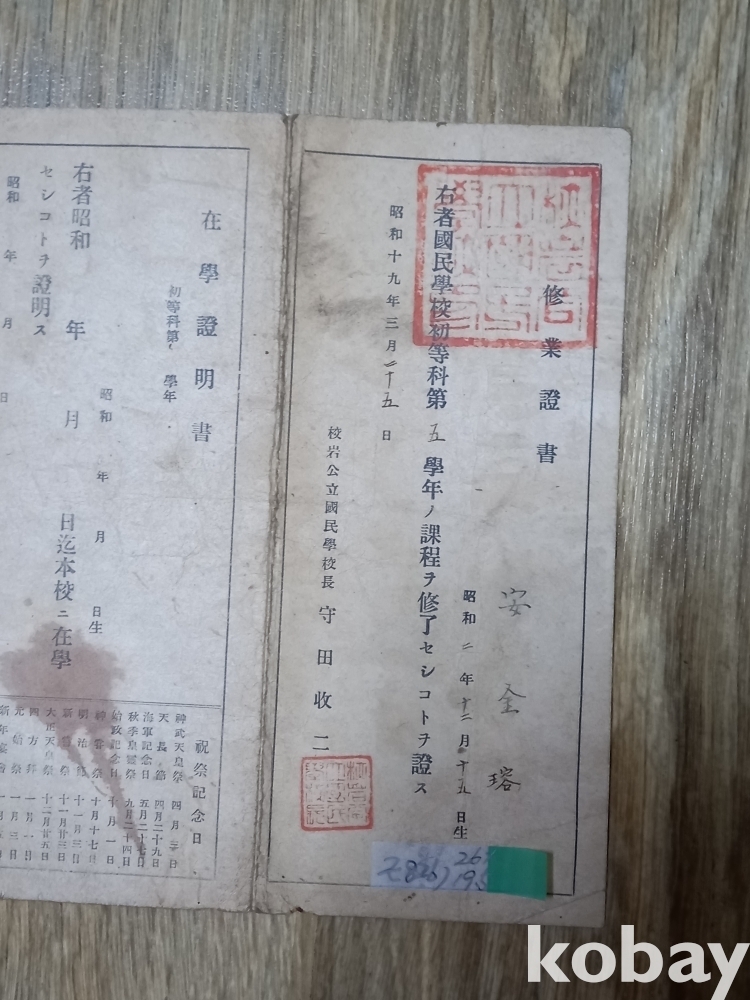 修業證書
安金瑢
昭和二年十二月十五日生
右者國民學校初等科第五學年ノ課程ヲ修了セシコトヲ證ス
昭和十九年三月二十五日
校岩公立國民學校長 守田收二
在學證明書
初等科第 學年
昭和 年 月 日生
右者昭和 年 月 日迄本校ニ在學
セシコトヲ證明ス
昭和 年 月 日
祝祭記念日
神武天皇祭 四月三日
天長節 四月二十九日
海軍記念日 五月二十七日
秋季皇靈祭 九月二十四日
始政記念日 十月一日
神嘗祭 十月十七日
明治節 十一月三日
新嘗祭 十一月廿三日
大正天皇祭 十二月廿五日
四方拜 一月一日
元始祭 一月三日
新年宴會
kobay